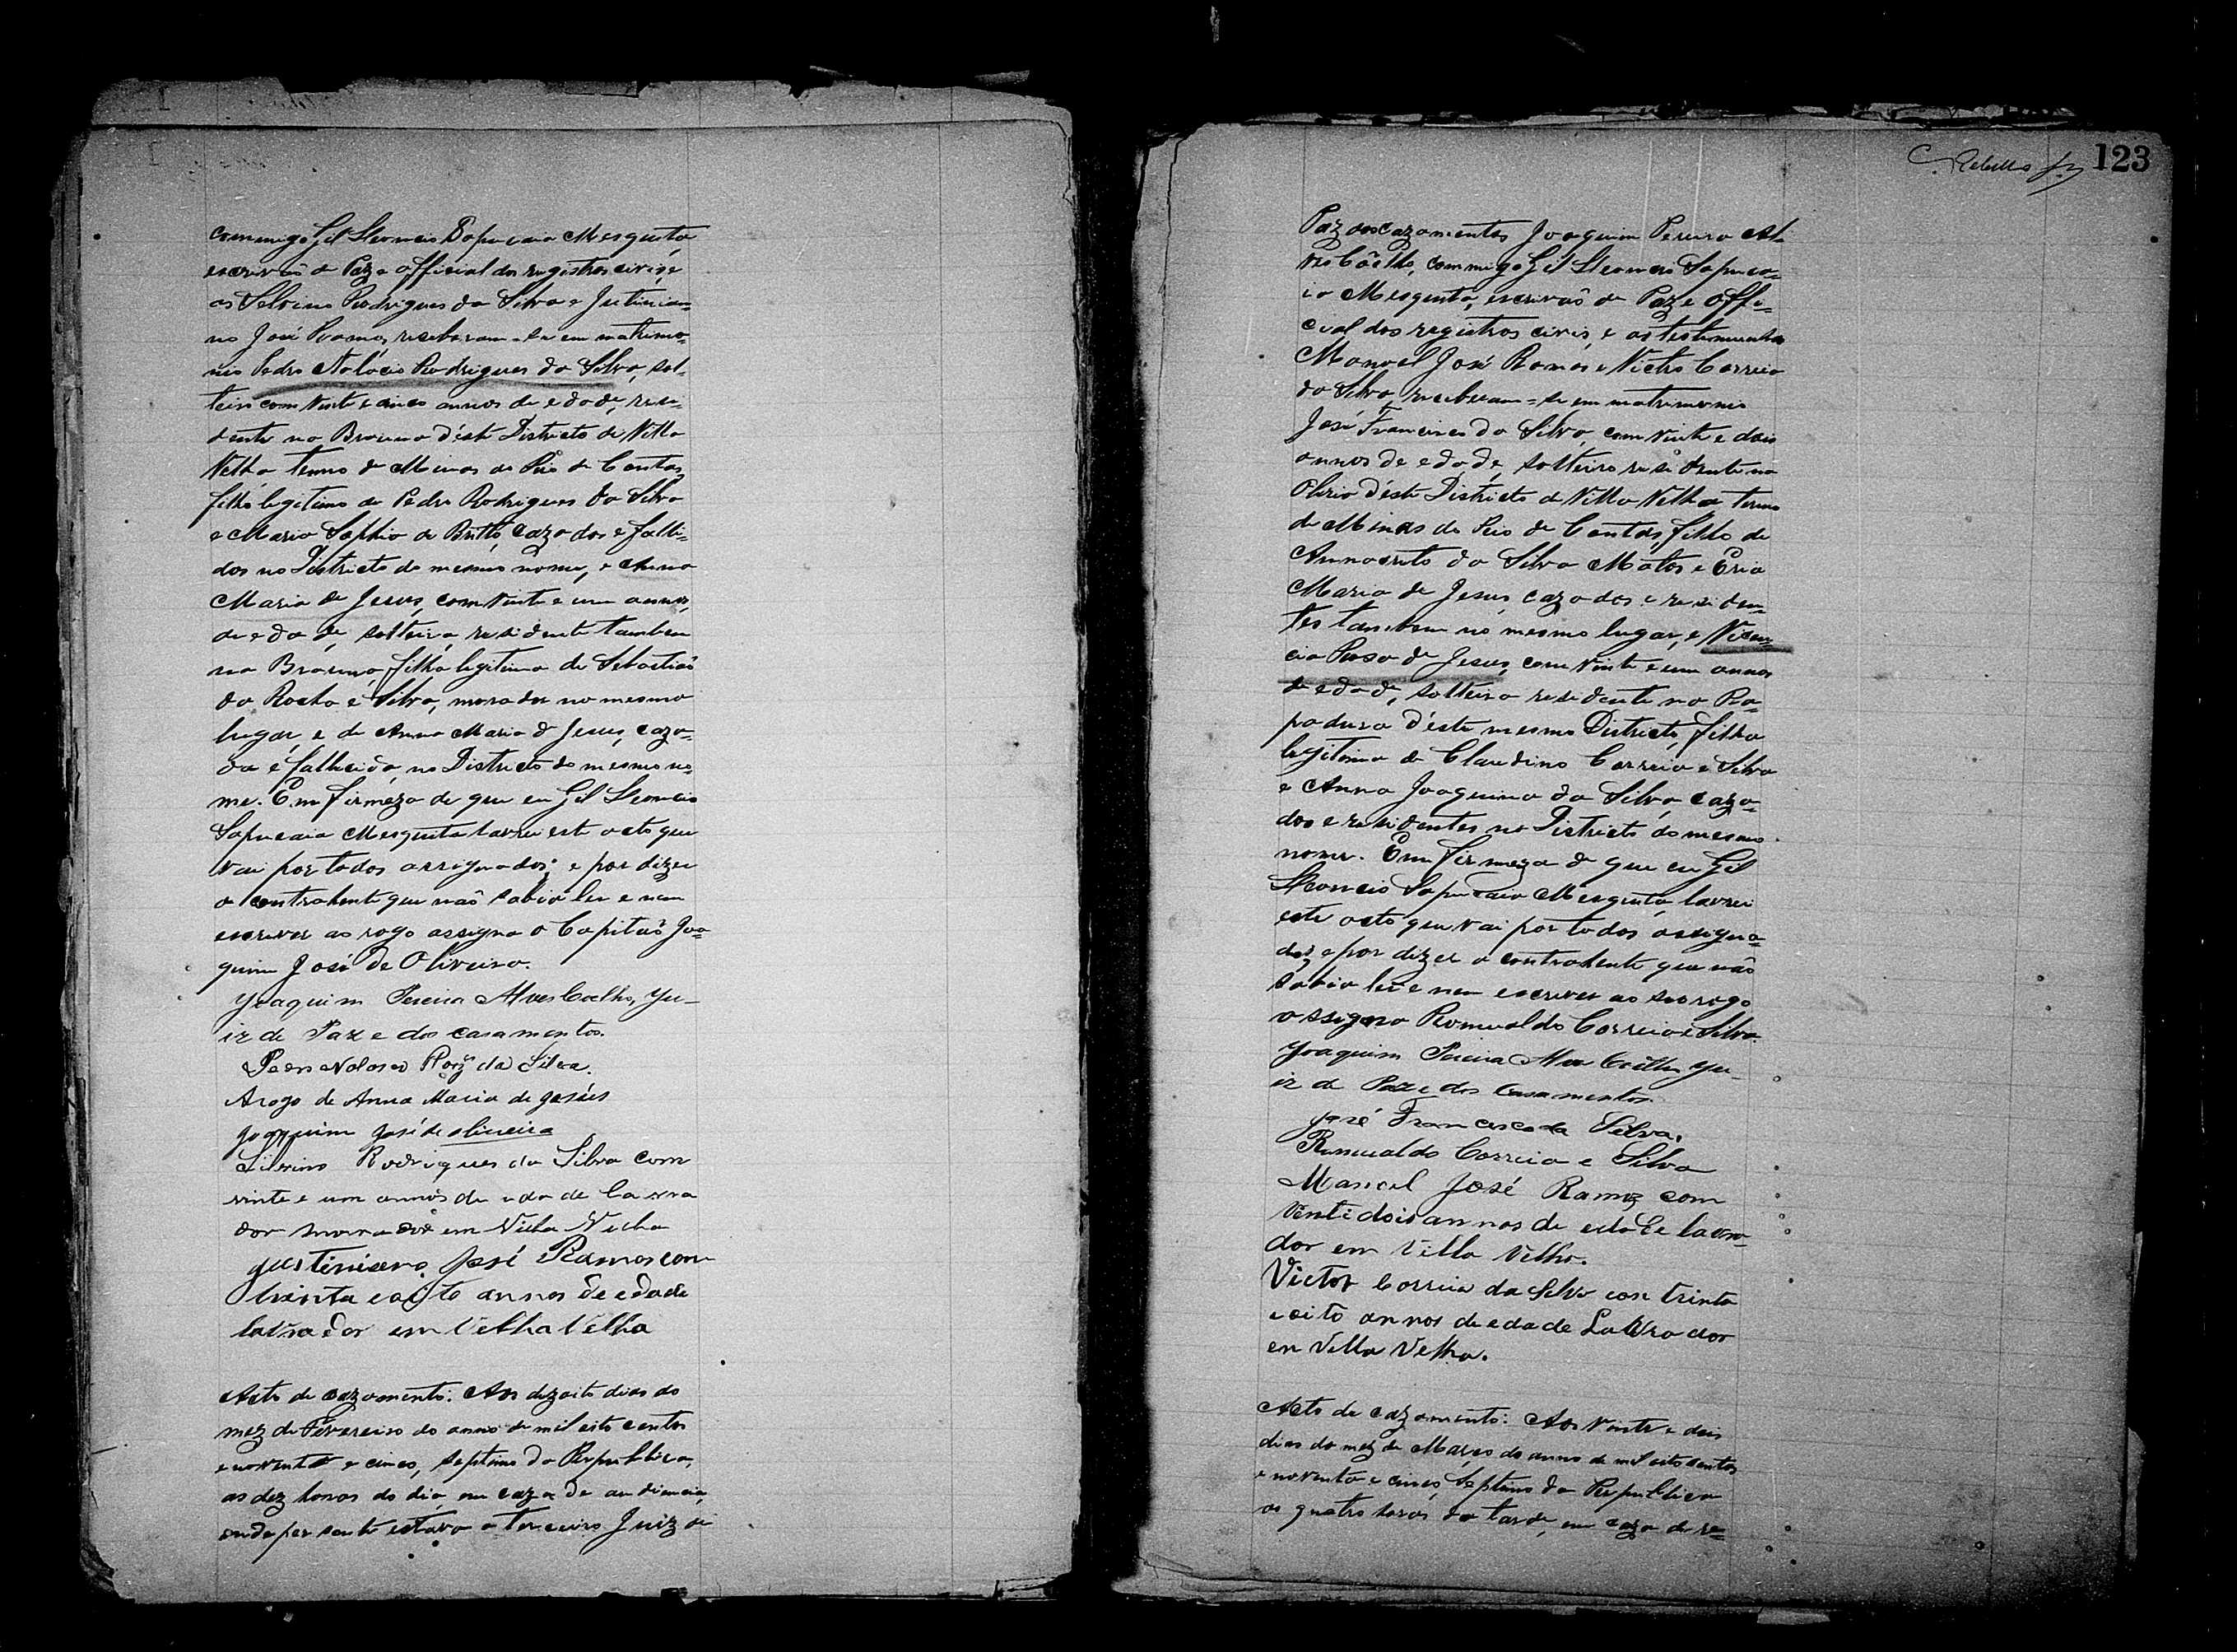 commigo Gil Leoncio Sapucaia Mesquita,
escrivão de Paz e official dos registros civis, e
as Selvino Rodrigues da Silva e Justinia-
no José Ramos, receberam-se em matrimo-
nio Pedro Nolacio Rodrigues da Silva, sol-
teiro com vinte e cinco annos de edade, resi-
dente no Brauna d'este Districto de Villa
Velha termo de Minas do Rio de Contas,
filho legitimo de Pedro Rodrigues da Silva
e Maria Saphia de Britto, cazados e falli-
dos no Districto do mesmo nome, e Anna
Maria de Jesus, com vinte e um annos,
de edade, solteira, residente tambem
na Brauna, filha legitima de Sebastião
da Rocha e Silva, morador no mesmo
lugar, e de Anna Maria de Jesus, caza-
da e fallecida, no Districto do mesmo no-
me. Em firmeza de que eu Gil Leoncio
Sapucaia Mesquita lavrei este acto que
vai por todos assignados; e por dizer
a contrahente que não sabia ler e nem
escrever ao rogo assigna o Capitão Joa-
quim José de Oliveira.
Joaquim Pereira Alves Coelho, Ju-
iz de Paz e dos casamentos.
Pedro Nolasco Roiz da Silva.
Arogo de Anna Maria de Jesús
Joaquim José de oliveira
Silvino Rodrigues da Silva com
vinte e um annos de edade lavra
dor morador em Villa Velha
Justiniano José Ramos com
trinta e oito annos de edade
lavrador em Velha Velha
Acto de cazamento: Aos dezoito dias do
mez de Fevereiro do anno de mil oito centos
e noventa e cinco, septimo da Republica,
as dez horas do dia, em caza de audiencia,
onde presente estava o terceiro Juiz de
Rebello Jr. 123
Paz dos cazamentos Joaquim Pereira Al-
ves Coêlho, commigo Gil Leoncio Sapuca-
ia Mesquita, escrivão de Paz e offi-
cial dos registros civis, e as testemunhas
Manoel José Ramos e Victor Correia
da Silva, receberam-se em matrimonio
José Francisco da Silva, com vinte e dois
annos de edade, solteiro residente no
d'este Districto de Villa Velha termo
de Minas do Rio de Contas, filho de
da Silva Matos e
Maria de Jesus, cazados e residen-
tes tambem no mesmo lugar, e Vicen-
cia Rosa de Jesus, com vinte e um annos
de edade, solteira residente na Ra-
padura d'este mesmo Districto, filha
legitima de Claudino Correia e Silva
e Anna Joaquina da Silva, caza-
dos e residentes no Districto do mesmo
nome. Em firmeza de que eu Gil
Leoncio Sapucaia Mesquita, lavrei
este acto que vai por todos assigna-
dos; e por dizer a contrahente que não
sabia ler e nem escrever ao seo rogo
assigna Romualdo Correia e Silva.
Joaquim Pereira Alves Coelho, Ju-
iz de Paz e dos Casamentos.
José Francisco da Silva.
Rumualdo Correia e Silva
Manoel José Ramoz com
venti dois annos de edade lavra-
dor em Villa Velha.
Victor Correia da Silva con trinta
e oito annos de edade Lavrador
en Villa Velha.
Acto de cazamento: Aos vinte e dois
dias do mez de Março do anno de mil oitocentos
e noventa e cinco, Septimo da Republica
as quatro horas da tarde, em caza de re-